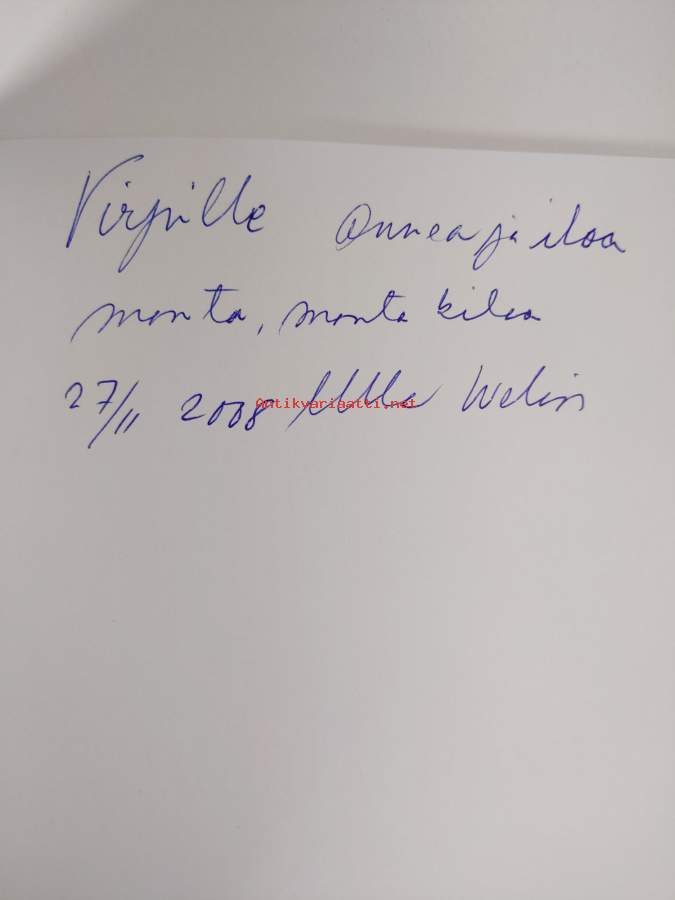 Virpille Onnea ja iloa
monta, monta kiloa
27/11 2008 Ulla Welin
Antikvariaatti.net